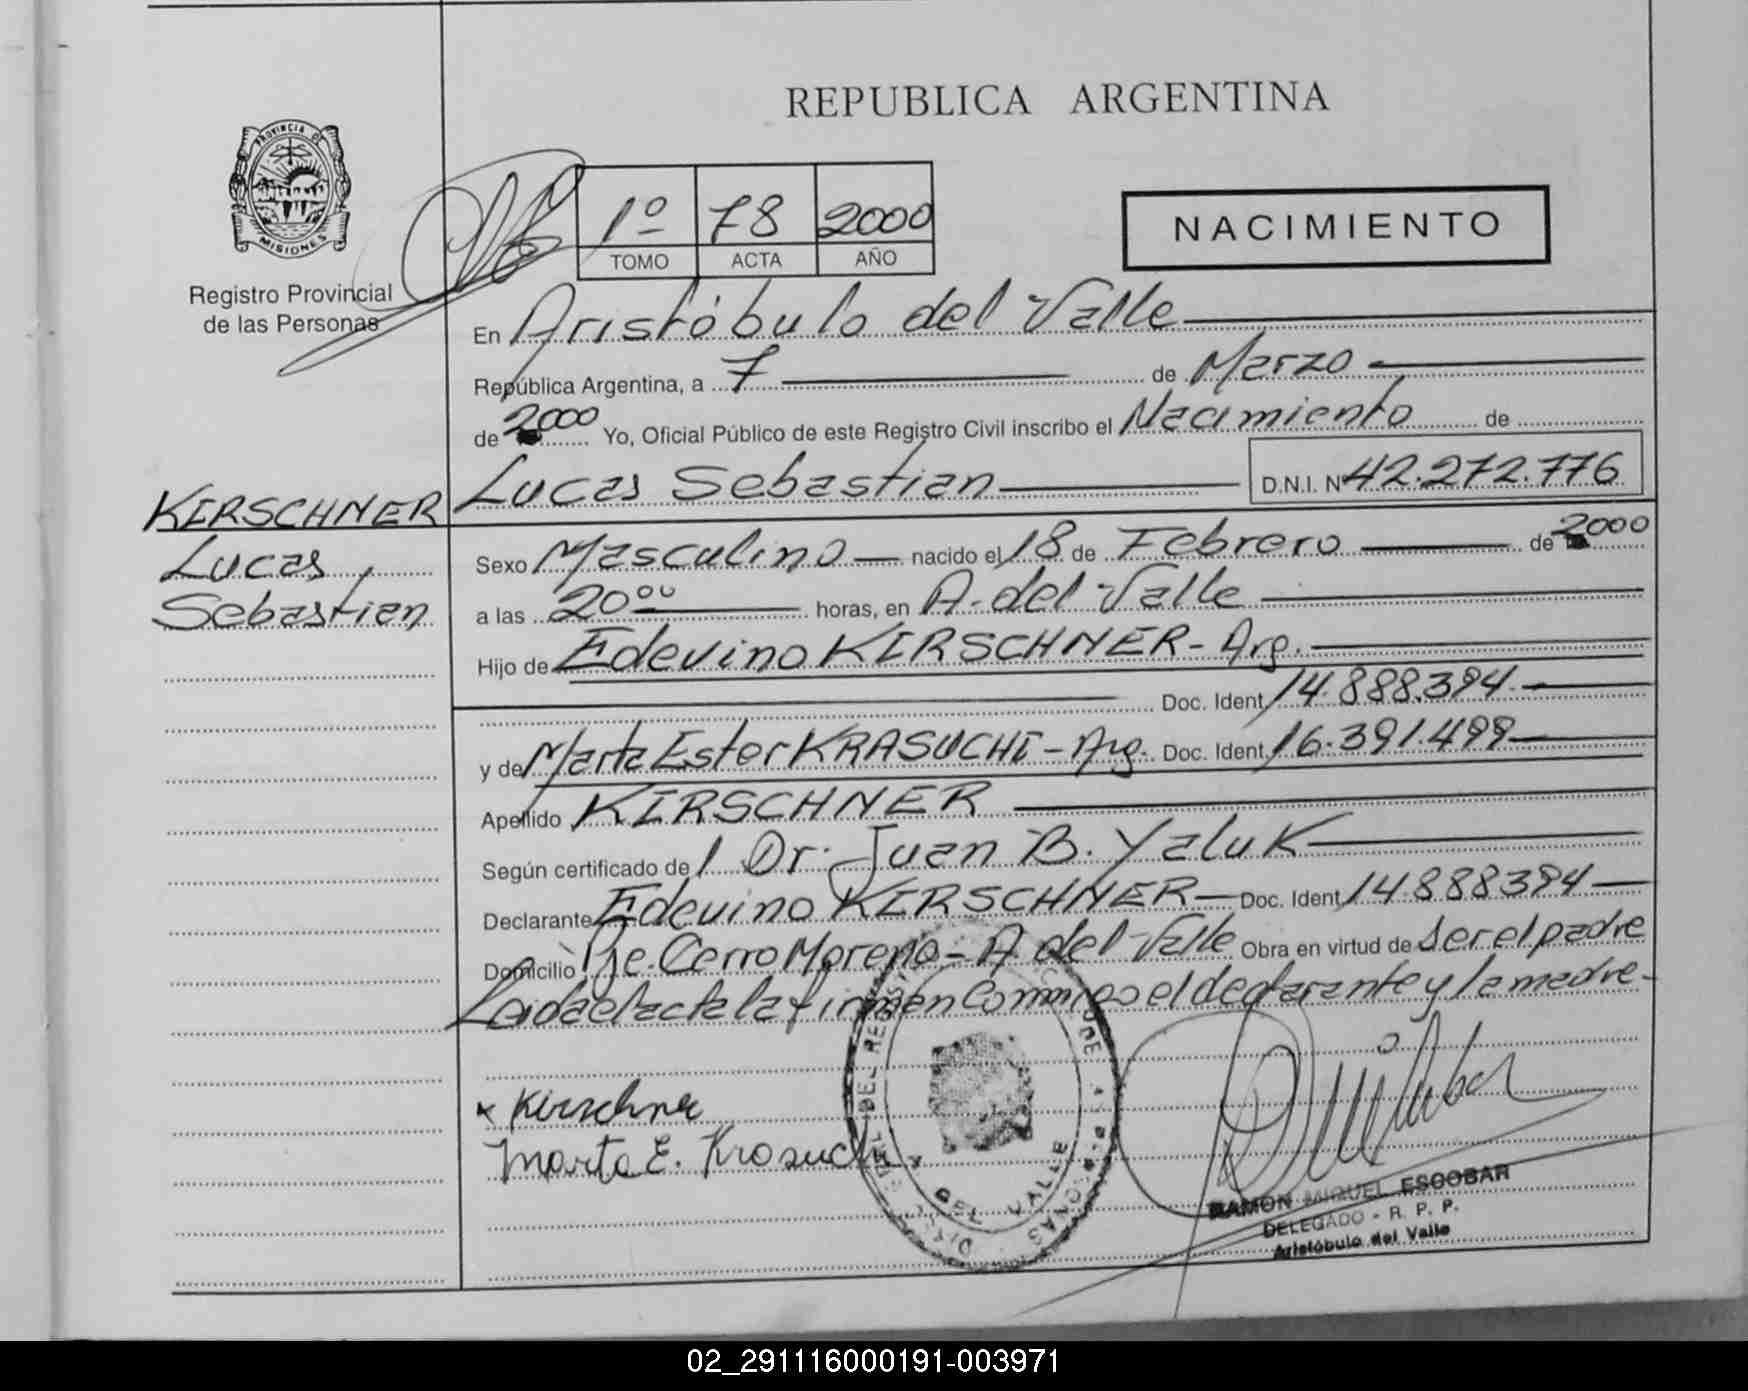 REPUBLICA ARGENTINA
PROVINCIA DE
MISIONES
Registro Provincial
de las Personas
1º 78 2000
TOMO ACTA AÑO
NACIMIENTO
En Aristóbulo del Valle
República Argentina, a 7 de Marzo
de 2000 Yo, Oficial Público de este Registro Civil inscribo el Nacimiento de
Lucas Sebastian D.N.I. Nº 42.272.776
KIRSCHNER
Lucas
Sebastian
Sexo Masculino nacido el 18 de Febrero de 2000
a las 20 00 horas, en A. del Valle
Hijo de Edevino KIRSCHNER - Arg.
Doc. Ident. 14.888.394
y de Marta Ester KRASUCHI - Arg. Doc. Ident. 16.391.499
Apellido KIRSCHNER
Según certificado del Dr. Juan B. Yaluk
Declarante Edevino KIRSCHNER Doc. Ident. 14.888394
Domicilio Pje. Cerro Moreno - A del Valle Obra en virtud de ser el padre
Leida el acta la firman Conmigo el declarante y la madre-
x Kirschner
Marta E. Krasuchi
DEL VALLE
RAMON MIGUEL ESCOBAR
DELEGADO - R. P. P.
Aristóbulo del Valle
02_291116000191-003971